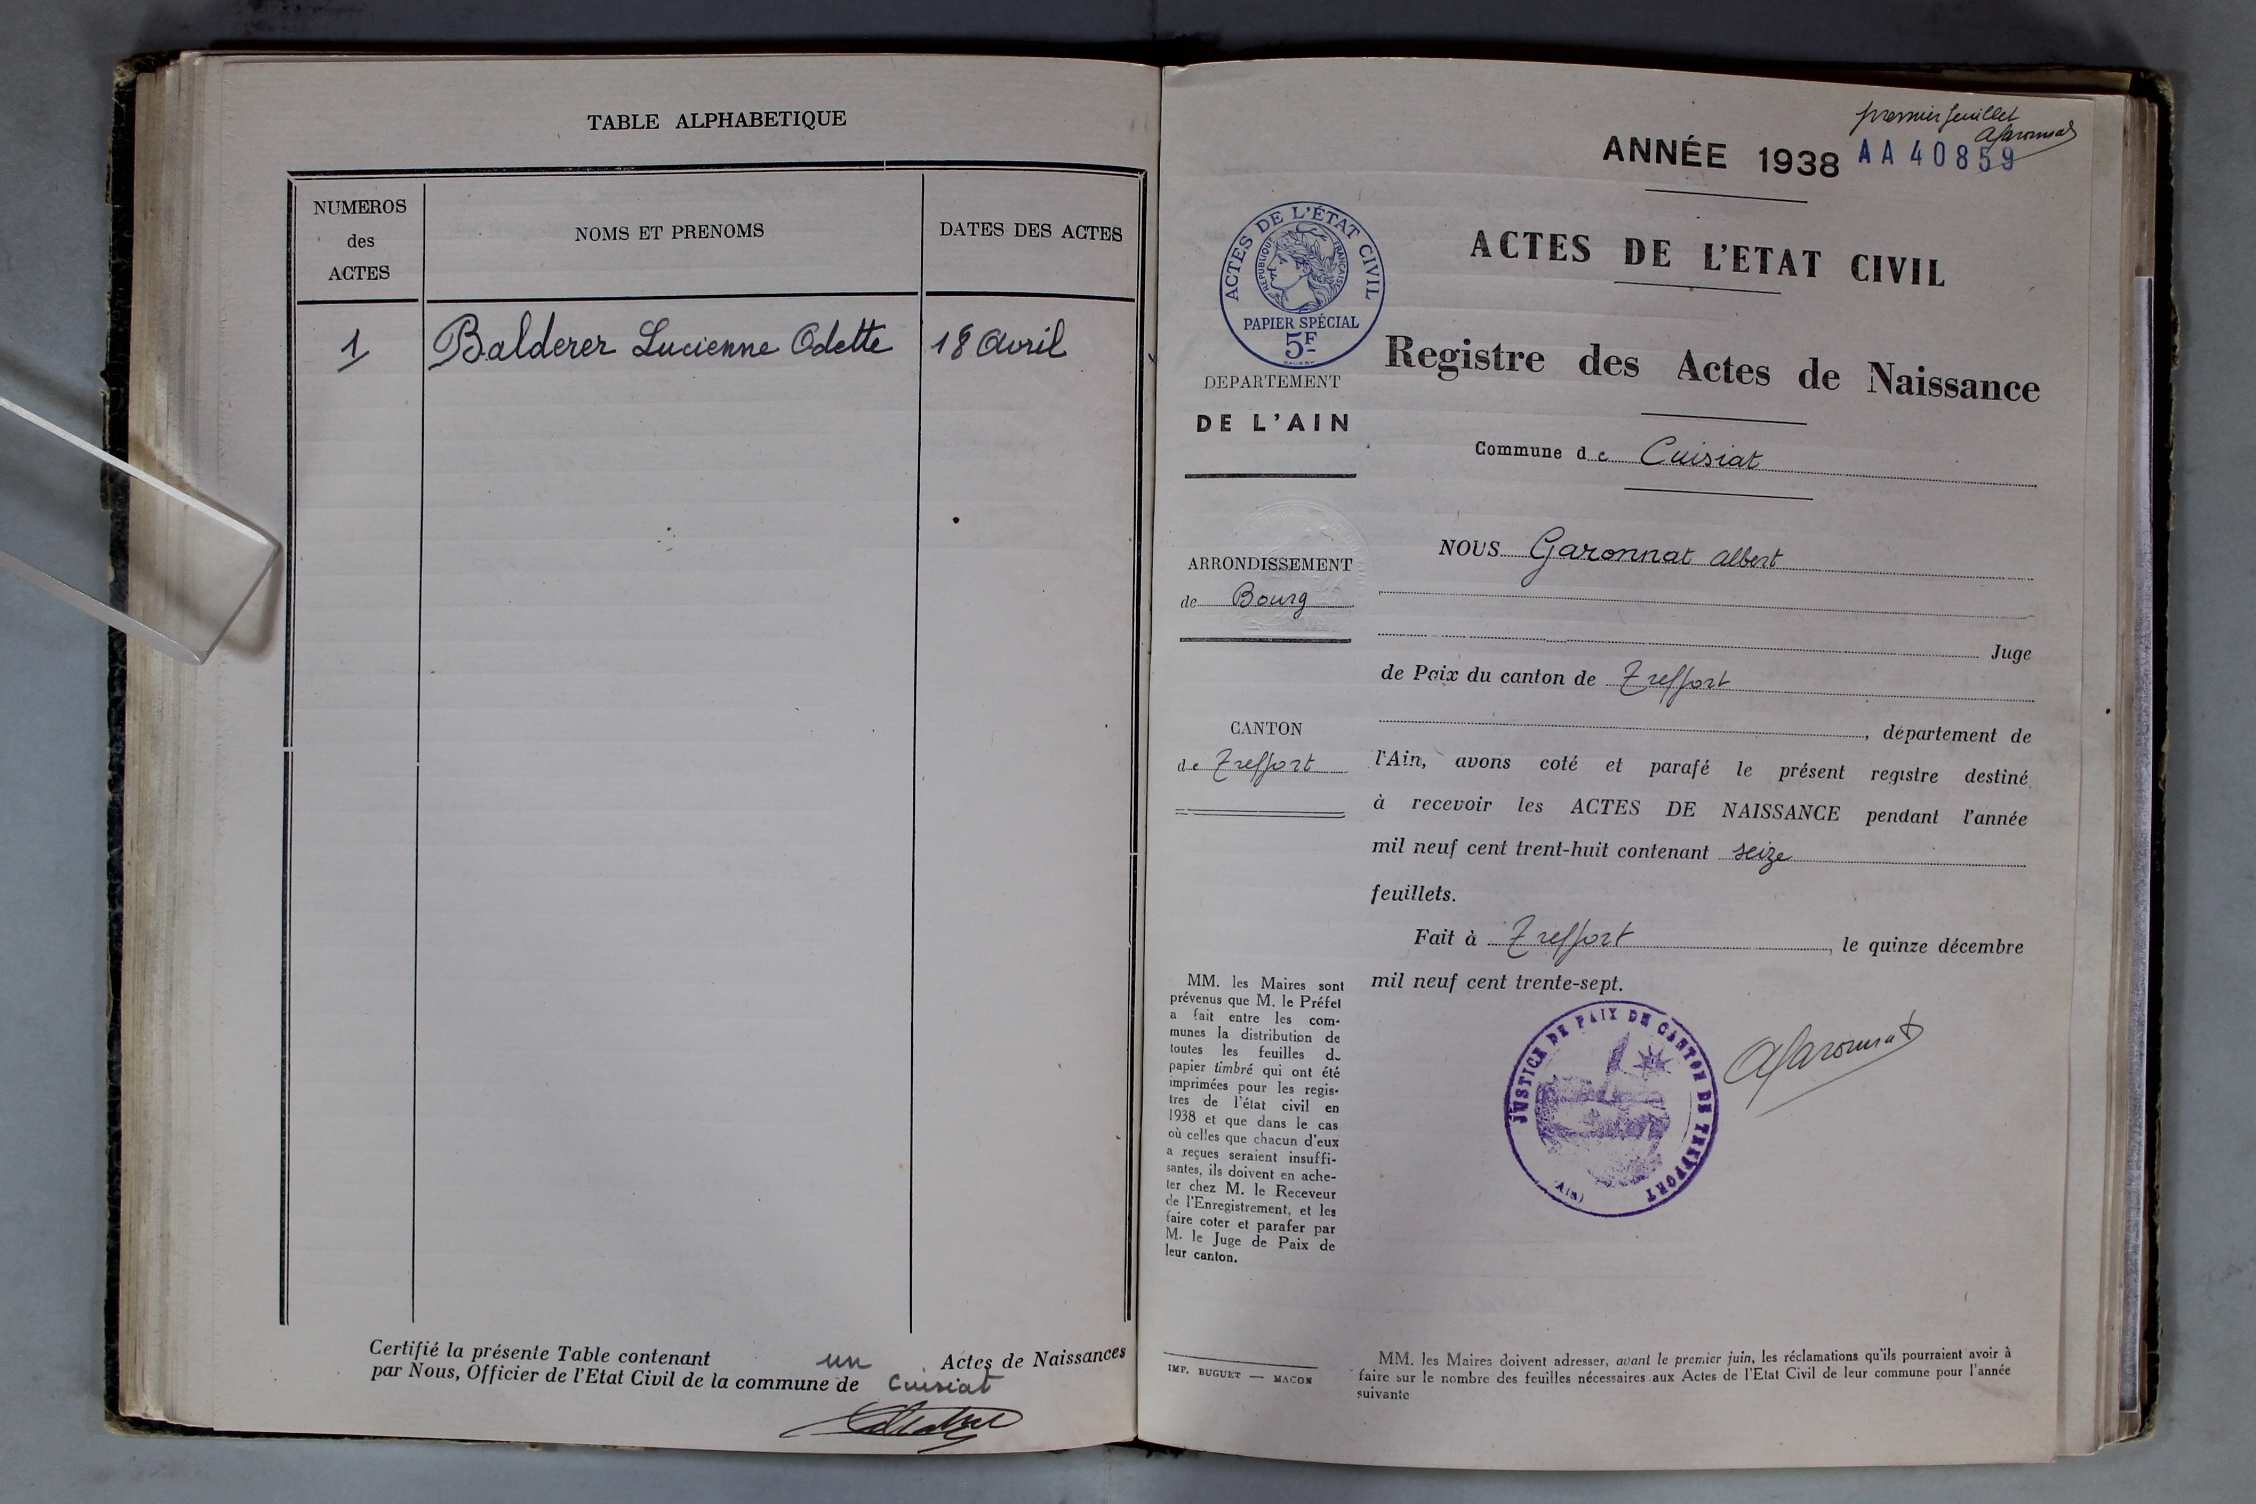 TABLE ALPHABETIQUE
NUMEROS
des
ACTES
NOMS ET PRENOMS
DATES DES ACTES
1 Balderer Lucienne Odette 18 Avril
Certifié la présente Table contenant un Actes de Naissances
par Nous, Officier de l'Etat Civil de la commune de Cuisiat
premier feuillet
AGaronnat
ANNÉE 1938 AA 40859
ACTES DE L'ÉTAT CIVIL
RÉPUBLIQUE FRANÇAISE
PAPIER SPÉCIAL
5F
ACTES DE L'ETAT CIVIL
Registre des Actes de Naissance
DEPARTEMENT
DE L'AIN
Commune de Cuisiat
ARRONDISSEMENT
de Bourg
CANTON
de Treffort
NOUS Garonnat Albert
Juge
de Paix du canton de Treffort
, département de
l'Ain, avons coté et parafé le présent registre destiné
à recevoir les ACTES DE NAISSANCE pendant l'année
mil neuf cent trent-huit contenant seize
feuillets.
Fait à Treffort, le quinze décembre
mil neuf cent trente-sept.
JUSTICE DE PAIX DE CANTON DE TREFFORT
(AIN)
AGaronnat
MM. les Maires sont
prévenus que M. le Préfet
a fait entre les com-
munes la distribution de
toutes les feuilles de
papier timbré qui ont été
imprimées pour les regis-
tres de l'état civil en
1938 et que dans le cas
où celles que chacun d'eux
a reçues seraient insuffi-
santes, ils doivent en ache-
ter chez M. le Receveur
de l'Enregistrement, et les
faire coter et parafer par
M. le Juge de Paix de
leur canton.
IMP. BUGUET — MACON
MM. les Maires doivent adresser, avant le premier juin, les réclamations qu'ils pourraient avoir à
faire sur le nombre des feuilles nécessaires aux Actes de l'Etat Civil de leur commune pour l'année
suivante